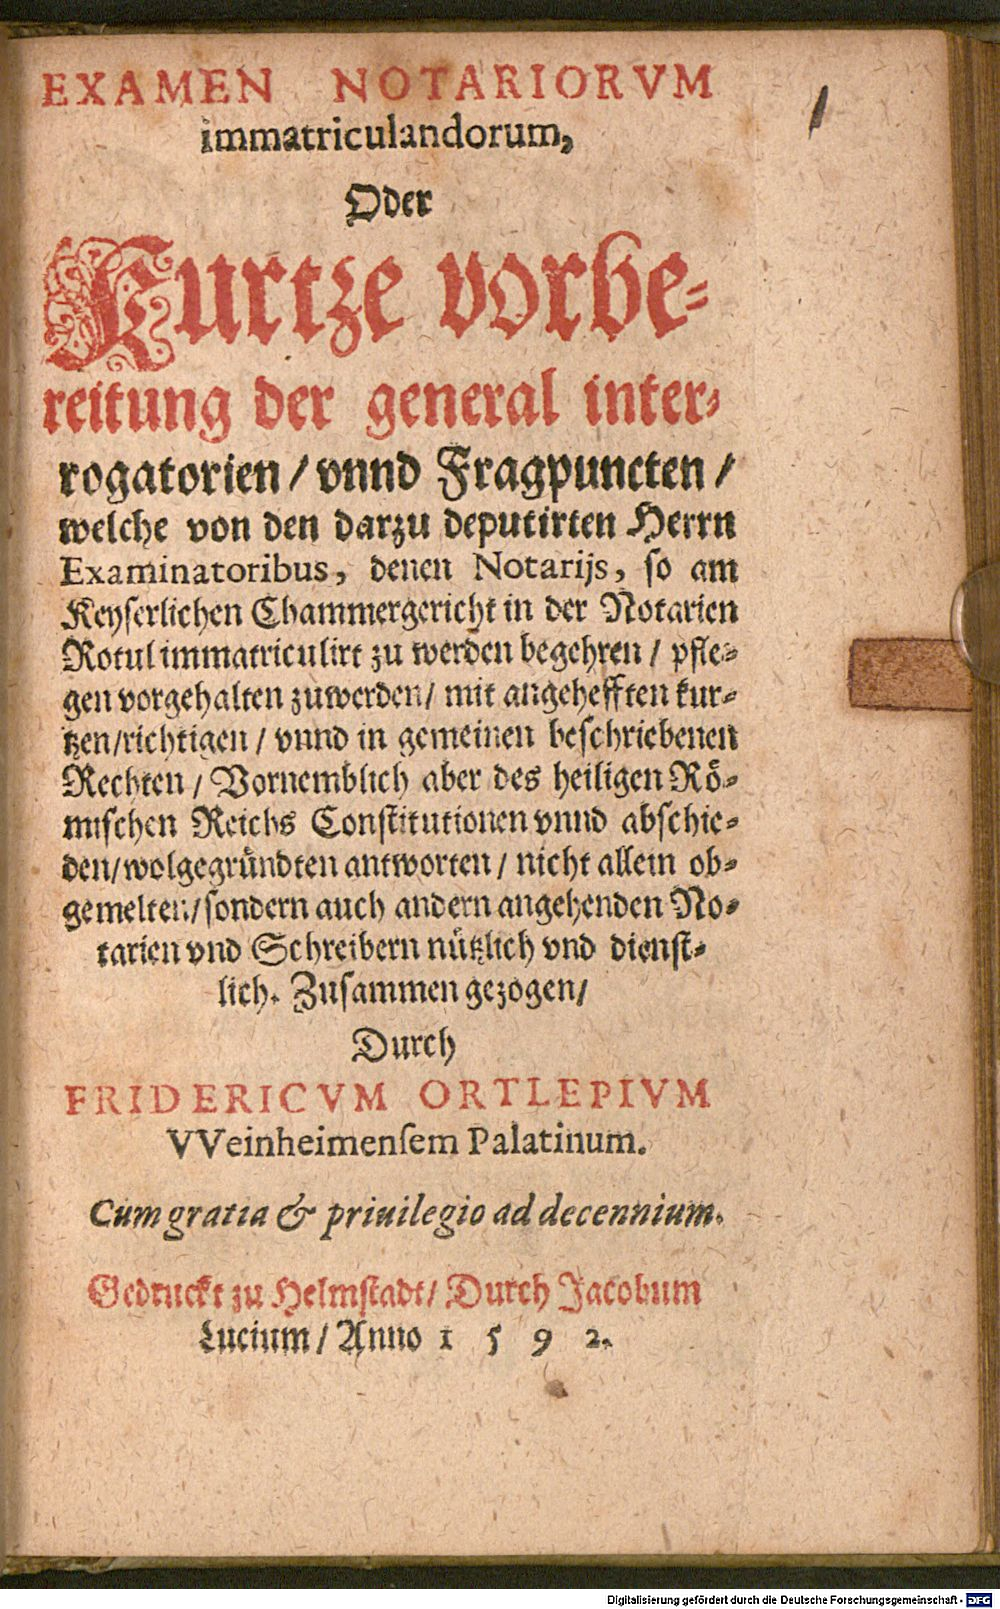 EXAMEN NOTARIORVM
immatriculandorum,
1
Oder
Kurtze vorbe-
reitung der general inter-
rogatorien / vnnd Fragpuncten /
welche von den darzu deputirten Herrn
Examinatoribus, denen Notarijs, so am
Keyserlichen Chammergericht in der Notarien
Rotul immatriculirt zu werden begehren / pfle-
gen vorgehalten zuwerden / mit angehefften kur-
tzen / richtigen / vnnd in gemeinen beschriebenen
Rechten / Vornemblich aber des heiligen Rö-
mischen Reichs Constitutionen vnnd abschie-
den / wolgegründten antworten / nicht allein ob-
gemelten / sondern auch andern angehenden No-
tarien vnd Schreibern nützlich vnd dienst-
lich. Zusammen gezogen /
Durch
FRIDERICVM ORTLEPIVM
VVeinheimenſem Palatinum.
Cum gratia & priuilegio ad decennium.
Gedruckt zu Helmstadt / Durch Jacobum
Lucium / Anno 1 5 9 2.
Digitalisierung gefördert durch die Deutsche Forschungsgemeinschaft - DFG